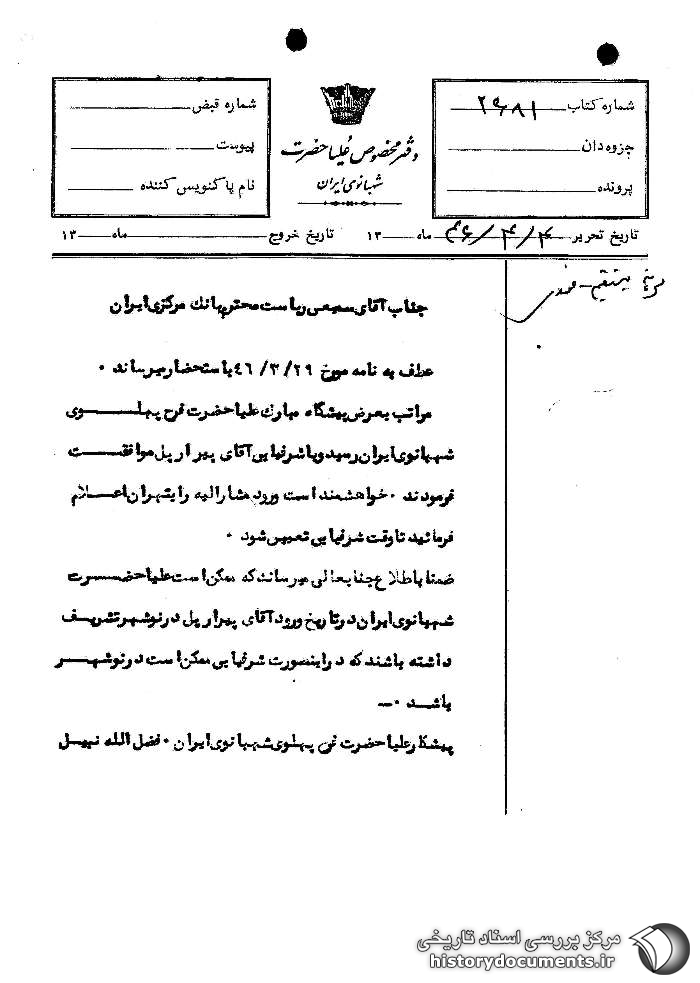 شماره کتاب ۲۶۸۱
جزوه‌دان
پرونده
دفتر مخصوص علیاحضرت
شهبانوی ایران
شماره قبض
پیوست
نام پاکنویس کننده
تاریخ تحریر ۴۶/۴/۴ ماه ۱۳
تاریخ خروج ماه ۱۳
جناب آقای سمیعی ریاست محترم بانك مرکزی ایران
عطف به نامه مورخ ۴۶/۳/۲۹ باستحضار میرساند ۰
مراتب بعرض پیشگاه مبارك علیاحضرت فرح پهلوی
شهبانوی ایران رسید و با شرفیابی آقای پیر اریل موافقت
فرمودند ۰ خواهشمند است ورود مشارالیه را بتهران اعلام
فرمائید تا وقت شرفیابی تعیین شود ۰
ضمنا باطلاع جنابعالی میرساند که ممکن است علیاحضرت
شهبانوی ایران در تاریخ ورود آقای پیر اریل در نوشهر تشریف
داشته باشند که در اینصورت شرفیابی ممکن است در نوشهر
باشد ۰ــ
پیشکار علیاحضرت فرح پهلوی شهبانوی ایران ۰ فضل الله نبیل
مرکز بررسی اسناد تاریخی
historydocuments.ir